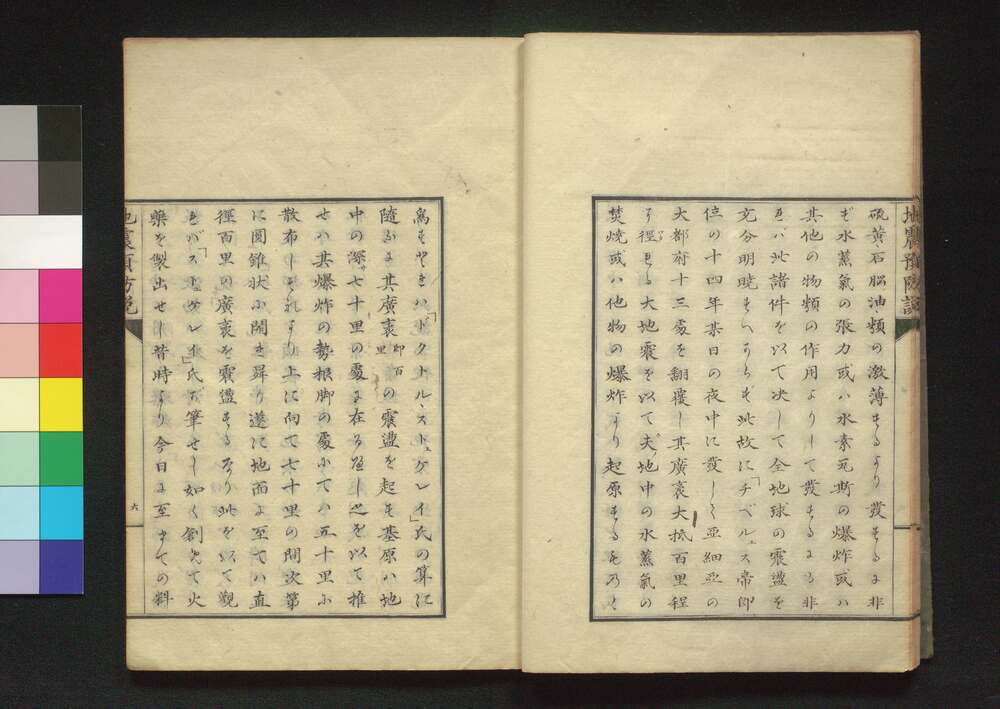 地震預防説
硫黄石脳油類の激薄するより發するに非
ず水蒸氣の張力或ハ水素瓦斯の爆炸或ハ
其他の物類の作用よりして發するにも非
れバ此諸件を以て决して全地球の震盪を
充分明暁すべからず此故に「チベルュス帝即
位の十四年某日の夜中に發し亞細亞の
大都府十三處を翻覆し其廣袤大抵百里程
に徑れる大地震を以て夫地中の水蒸氣の
焚焼或ハ他物の爆炸より起原するもの
「ドクトル、ストュケレイ」氏の算に
隨ふに其廣袤即百里の震盪を起す基原ハ地
中の深サ七十里の處に在るべし之を以て推
せハ其爆炸の勢根脚の處にてハ五十里に
散布しそれより上に向て七十里の間次第
に圓錐状に開き昇り遂に地面に至てハ直
徑百里の廣袤を震盪するなり此を以て觀
れバ「ストュケレイ」氏が筆せし如く創めて火
藥を製出せし昔時より今日に至までの料
地震預防説
六